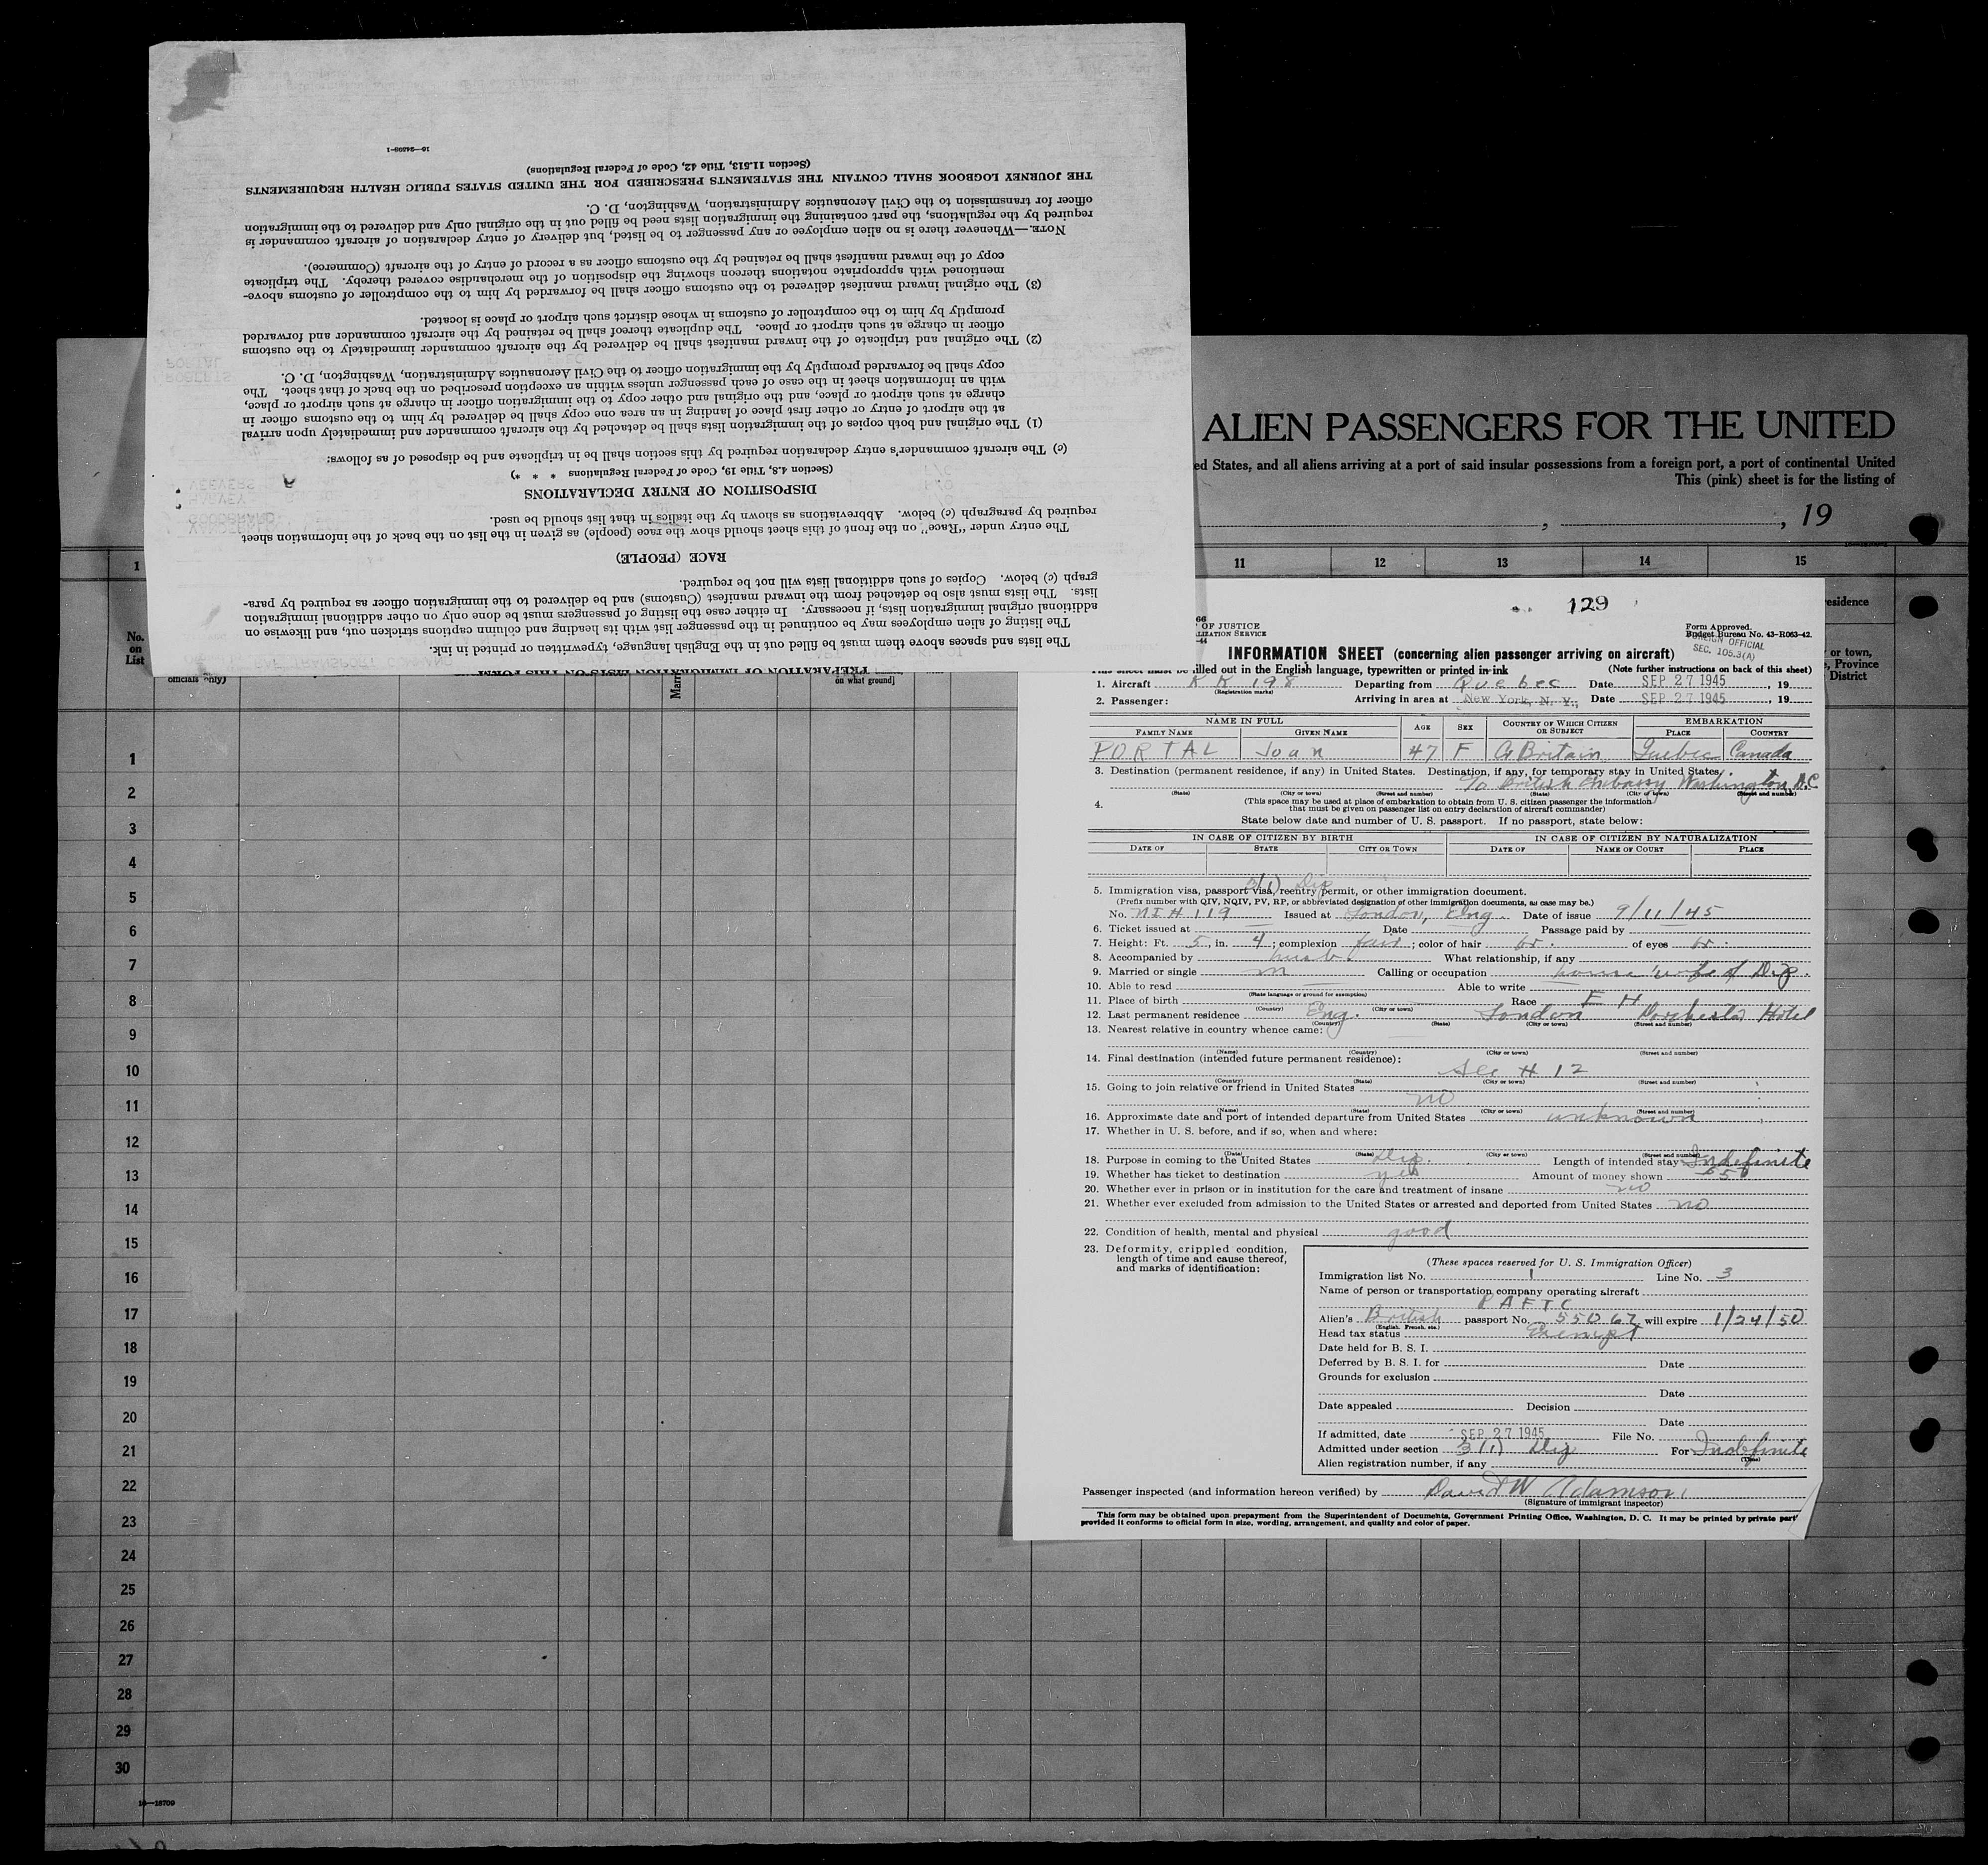 16—24599-1
(Section 11.513, Title 42, Code of Federal Regulations)
THE JOURNEY LOGBOOK SHALL CONTAIN THE STATEMENTS PRESCRIBED FOR THE UNITED STATES PUBLIC HEALTH REQUIREMENTS
officer for transmission to the Civil Aeronautics Administration, Washington, D. C.
required by the regulations, the part containing the immigration lists need be filled out in the original only and delivered to the immigration
NOTE.—Whenever there is no alien employee or any passenger to be listed, but delivery of entry declaration of aircraft commander is
copy of the inward manifest shall be retained by the customs officer as a record of entry of the aircraft (Commerce).
mentioned with appropriate notations thereon showing the disposition of the merchandise covered thereby. The triplicate
(3) The original inward manifest delivered to the customs officer shall be forwarded by him to the comptroller of customs above-
promptly by him to the comptroller of customs in whose district such airport or place is located.
officer in charge at such airport or place. The duplicate thereof shall be retained by the aircraft commander and forwarded
(2) The original and triplicate of the inward manifest shall be delivered by the aircraft commander immediately to the customs
copy shall be forwarded promptly by the immigration officer to the Civil Aeronautics Administration, Washington, D. C.
with an information sheet in the case of each passenger unless within an exception prescribed on the back of that sheet. The
charge at such airport or place, and the original and other copy to the immigration officer in charge at such airport or place,
at the airport of entry or other first place of landing in an area one copy shall be delivered by him to the customs officer in
(1) The original and both copies of the immigration lists shall be detached by the aircraft commander and immediately upon arrival
(c) The aircraft commander's entry declaration required by this section shall be in triplicate and be disposed of as follows:
(Section 4.5, Title 19, Code of Federal Regulations * * *)
DISPOSITION OF ENTRY DECLARATIONS
required by paragraph (c) below. Abbreviations as shown by the italics in that list should be used.
The entry under "Race" on the front of this sheet should show the race (people) as given in the list on the back of the information sheet
RACE (PEOPLE)
graph (c) below. Copies of such additional lists will not be required.
lists. The lists must also be detached from the inward manifest (Customs) and be delivered to the immigration officer as required by para-
additional original immigration lists, if necessary. In either case the listing of passengers must be done only on other additional immigration
The listing of alien employees may be continued in the passenger list with its heading and column captions stricken out, and likewise on
The lists and spaces above them must be filled out in the English language, typewritten or printed in ink.
PREPARATION OF IMMIGRATION LISTS ON THIS FORM
ALIEN PASSENGERS FOR THE UNITED
ed States, and all aliens arriving at a port of said insular possessions from a foreign port, a port of continental United
This (pink) sheet is for the listing of
, , 19
1 11 12 13 14 15
No. on List
officials only)
Marr
on what ground]
esidence
or town,
, Province
District
129
66
OF JUSTICE
LIZATION SERVICE
-44
Form Approved.
Budget Bureau No. 43-R063-42.
FOREIGN OFFICIAL
SEC. 105.3(A)
INFORMATION SHEET (concerning alien passenger arriving on aircraft)
This sheet must be filled out in the English language, typewritten or printed in ink (Note further instructions on back of this sheet)
1. Aircraft KK 198 Departing from Quebec Date SEP 27 1945, 19
(Registration marks)
2. Passenger: Arriving in area at New York, N. Y., Date SEP 27 1945, 19
NAME IN FULL AGE SEX COUNTRY OF WHICH CITIZEN OR SUBJECT EMBARKATION
FAMILY NAME GIVEN NAME PLACE COUNTRY
PORTAL Joan 47 F Gt Britain Quebec Canada
3. Destination (permanent residence, if any) in United States. Destination, if any, for temporary stay in United States,
c/o British Embassy Washington, D.C
(State) (City or town) (Street and number) (State) (City of town) (Street and number)
4. (This space may be used at place of embarkation to obtain from U. S. citizen passenger the information
that must be given on passenger list on entry declaration of aircraft commander)
State below date and number of U. S. passport. If no passport, state below:
IN CASE OF CITIZEN BY BIRTH IN CASE OF CITIZEN BY NATURALIZATION
DATE OF STATE CITY OR TOWN DATE OF NAME OF COURT PLACE
3(1) Dip
5. Immigration visa, passport visa, reentry permit, or other immigration document.
(Prefix number with QIV, NQIV, PV, RP, or abbreviated designation of other immigration documents, as case may be.)
No. NI # 119 Issued at London, Eng. Date of issue 9/11/45
6. Ticket issued at Date Passage paid by
7. Height: Ft. 5, in. 4; complexion fair; color of hair br. of eyes br.
8. Accompanied by husb. What relationship, if any
9. Married or single m Calling or occupation housewife of Dip.
10. Able to read Able to write
(State language or ground for exemption)
11. Place of birth Race
(Country) (City or town)
12. Last permanent residence Eng. London Dorchester Hotel
(Country) (State) (City or town) (Street and number)
13. Nearest relative in country whence came:
(Name) (Country) (City or town) (Street and number)
14. Final destination (intended future permanent residence):
See # 12
(Country) (State) (City or town) (Street and number)
15. Going to join relative or friend in United States
no
(Name) (State) (City or town) (Street and number)
16. Approximate date and port of intended departure from United States unknown
17. Whether in U. S. before, and if so, when and where:
(Date) (State) (City or town) (Street and number)
18. Purpose in coming to the United States Dip. Length of intended stay Indefinite
19. Whether has ticket to destination yes Amount of money shown
20. Whether ever in prison or in institution for the care and treatment of insane no
21. Whether ever excluded from admission to the United States or arrested and deported from United States no
22. Condition of health, mental and physical good
23. Deformity, crippled condition,
length of time and cause thereof,
and marks of identification:
(These spaces reserved for U. S. Immigration Officer)
Immigration list No. 1 Line No. 3
Name of person or transportation company operating aircraft
RAFTC
Alien's British passport No. 55067 will expire 1/24/50
(English, French, etc.)
Head tax status Exempt
Date held for B. S. I.
Deferred by B. S. I. for Date
Grounds for exclusion
Date
Date appealed Decision
Date
If admitted, date SEP 27 1945 File No.
Admitted under section 3(1) Dip For Indefinite
(Time)
Alien registration number, if any
Passenger inspected (and information hereon verified) by David W Adamson
(Signature of immigrant inspector)
This form may be obtained upon prepayment from the Superintendent of Documents, Government Printing Office, Washington, D. C. It may be printed by private part
provided it conforms to official form in size, wording, arrangement, and quality and color of paper.
1
2
3
4
5
6
7
8
9
10
11
12
13
14
15
16
17
18
19
20
21
22
23
24
25
26
27
28
29
30
16—18709